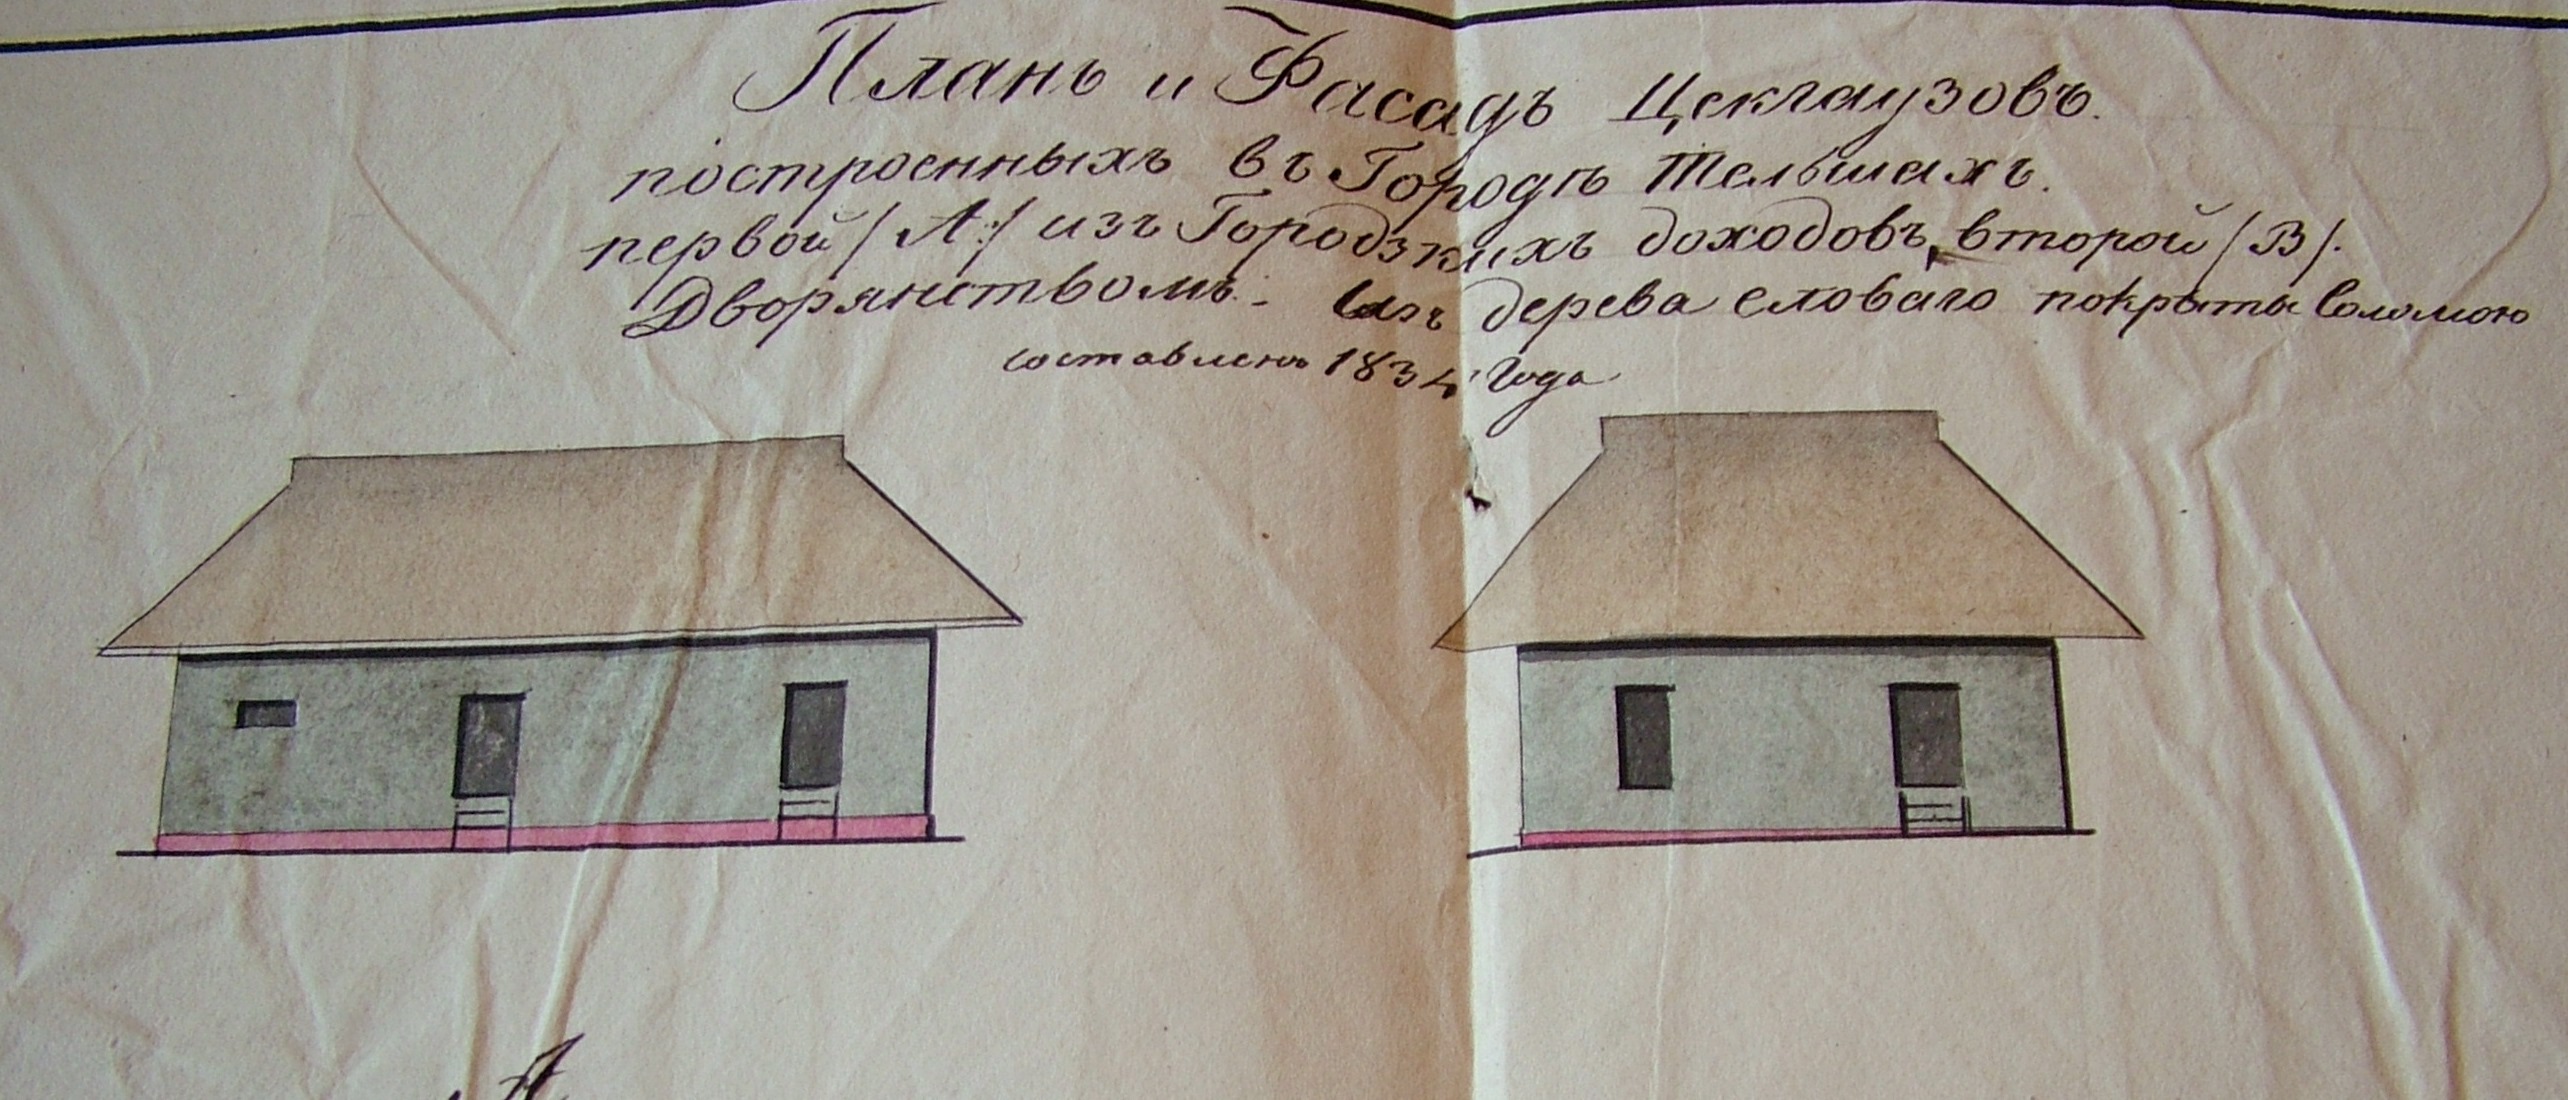 Планъ и Фасадъ Цекгаузовъ.
построенныхъ въ Городѣ Тельшахъ.
первой /А:/ изъ Городзкихъ доходовъ, второй /В/.
Дворянствомъ. - изъ дерева еловаго покрыты Соломою
составленъ 1834 Года
А